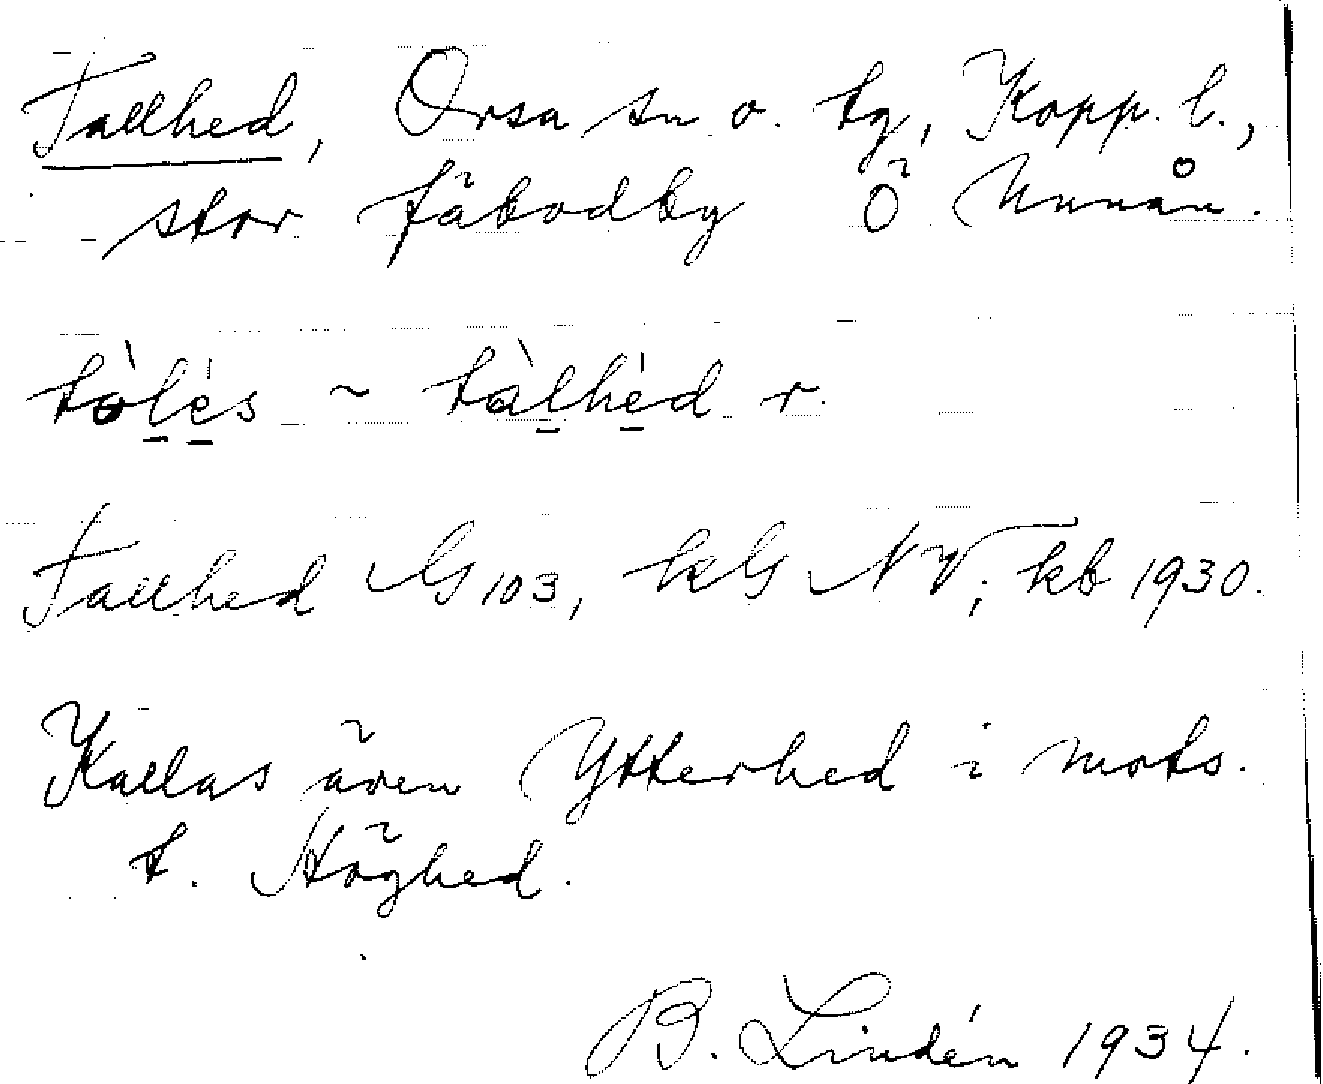 Tallhed, Orsa sn o. tg, Kopp. l.,
stor fäbodby Ö Unnån.
tòlés ~ tàlhèd r.
Tallhed G 103, kG NV; kb 1930.
Kallas även Ytterhed i mots.
t. Höghed.
B. Lindén 1934.